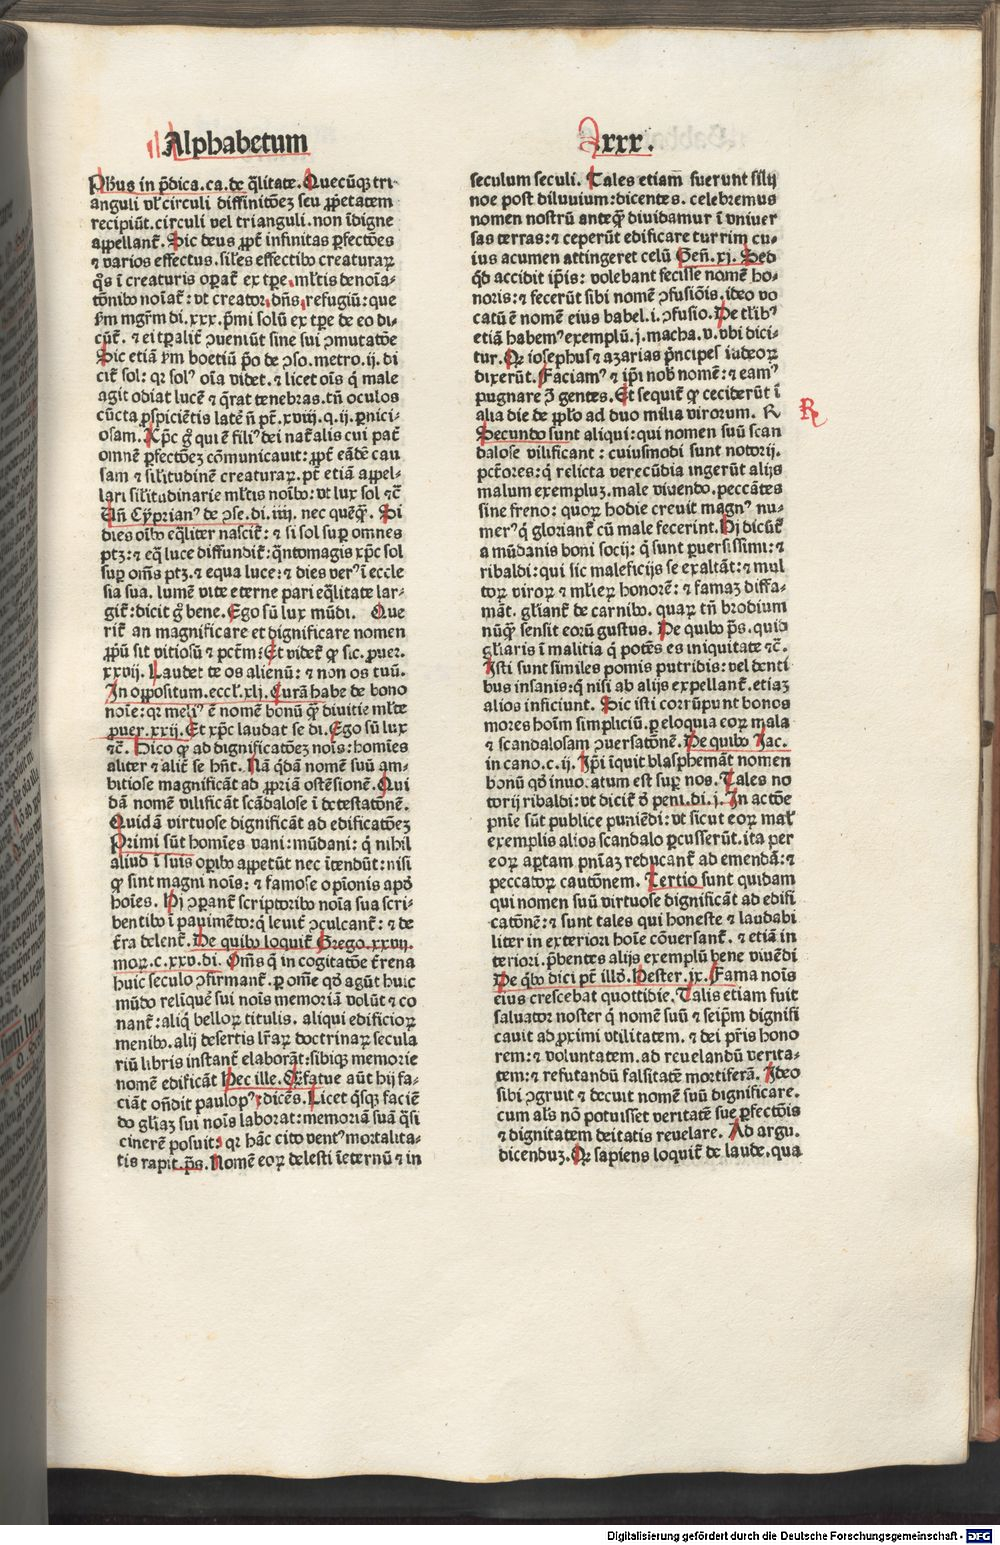 Alphabetum
xxx.
Phūs in p̄dica.ca.de q̄litate. Quecūqꝫ tri⸗
anguli vl̓ circuli diffinitōeꝫ seu ꝓpͥetatem
recipiūt.circuli vel trianguli.non īdigne
appellant̄. Sic deus ꝓpt̄ infinitas ꝑfectōes
⁊ varios effectus.siles effectibꝰ creaturaꝝ
q̄s ī creaturis oꝑat̄ ex tꝑe.ml̓tis denoīa⸗
tōnibꝰ noīat̄: vt creator.dn̄s.refugiū: que
ẜm mgr̄m di.xxx.p̄mi solū ex tꝑe de eo di⸗
cūt̄. ⁊ ei tꝑalit̄ ꝯueniūt sine sui ꝯmutatōe
Sic etiā ẜm boetiū p̄o de ꝯso.metro.ij.di
cit̄ sol: qꝛ solꝰ oīa videt.⁊ licet oīs q̄ male
agit odiat lucē ⁊ q̄rat tenebras.tn̄ oculos
cūcta ꝑspiciētis latē n̄ pt̄.xviij.q.ij.ꝑnici⸗
osam. Xp̄c g̊ qui ē filiꝰ dei nat̄alis cui pat̄
omnē ꝑfectōeꝫ cōmunicauit: ꝓpt̄ eādē cau
sam ⁊ silitudinē creaturaꝝ.pt̄ etiā appel⸗
lari silitudinarie ml̓tis noībꝰ: vt lux sol ⁊c̄
Vn̄ Cyprianꝰ de ꝯse.di.iiij. nec quēqꝫ. Si
dies oībꝰ eq̄liter nascit̄: ⁊ si sol suꝑ omnes
ptꝫ: ⁊ eq̄ luce diffundit̄: q̄ntomagis xp̄c sol
suꝑ om̄s ptꝫ.⁊ equa luce: ⁊ dies verꝰ ī eccle
sia sua. lumē vite eterne pari eq̄litate lar⸗
git̄: dicit g̊ bene. Ego sū lux mūdi. Que
rit̄ an magnificare et dignificare nomen
ꝓpͥū sit vitiosū ⁊ pctm̄: Et videt̄ ꝙ sic.ꝓuer.
xxvij. Laudet te os alienū: ⁊ non os tuū.
In oppositum.eccl̓.xlj. Curā habe de bono
noīe: qꝛ meliꝰ ē nomē bonū qꝫ diuitie ml̓te
ꝓuer.xxij. Et xp̄c laudat se di. Ego sū lux
⁊c̄. Dico ꝙ ad dignificatōeꝫ noīs: homīes
aliter ⁊ alit̄ se hn̄t. Nā q̄dā nomē suū am⸗
bitiose magnificāt ad ꝓpͥam ostēsionē. Qui
dā nomē vilificāt scādalose ī detestatōnē.
Quidā virtuose dignificāt ad edificatōeꝫ
Primi sūt homīes vani: mūdani: q̄ nihil
aliud ī suis oꝑibꝰ appetūt nec ītēdūt: nisi
ꝙ sint magni noīs: ⁊ famose opīonis apd̓
hoīes. Hi ꝯꝑant̄ scriptoribꝰ noīa sua scri⸗
bentibꝰ ī pauimēto: q̄ leuit̄ ꝯculcant̄: ⁊ de
t̄ra delent̄. De quibꝰ loquit̄ Grego.xxvij.
moꝝ.c.xxv.di. Om̄s q̄ in cogitatōe t̄rena
huic seculo ꝯfirmant̄. ꝑ omē qd̓ agūt huic
mūdo relīquē sui noīs memoriā volūt ⁊ co
nant̄: aliq̄ belloꝝ titulis. aliqui edificioꝝ
menibꝰ.alij desertis lr̄aꝝ doctrinaꝝ secula
riū libris instant̄ elaborāt: sibiqꝫ memorie
nomē edificāt Hec ille. Q̄ fatue aūt hij fa⸗
ciāt on̄dit pauloꝓꝰ dicēs. Licet q̄sqꝫ faciē
do gl̓iaꝫ sui noīs laborat: memoriā suā q̄si
cinerē posuit: qꝛ hāc cito ventꝰ mortalita⸗
tis rapit.p̄s. Nomē eoꝝ delesti īeternū ⁊ in
seculum seculi. Tales etiam̄ fuerunt filij
noe post diluuium: dicentes. celebremus
nomen nostrū anteqꝫ diuidamur ī vniuer
sas terras: ⁊ ceperūt edificare turrim cu⸗
ius acumen attingeret celū Gen̄.xj. Sed
qd̓ accidit ip̄is: volebant fecisse nomē ho⸗
noris: ⁊ fecerūt sibi nomē ꝯfusiōis.ideo vo
catū ē nomē eius babel.i.ꝯfusio. De tl̓ibꝰ
etiā habemꝰ exemplū.j.macha.v.vbi dici⸗
tur. Qꝛ iosephus ⁊ azarias p̄ncipes iudeoꝝ
dixerūt. Faciamꝰ ⁊ ip̄i nob̓ nomē: ⁊ eamꝰ
pugnare ꝯ̄ gentes. Et sequit̄ ꝙ ceciderūt ī
alia die de ppl̓o ad duo milia virorum. R
R
Secundo sunt aliqui: qui nomen suū scan
dalose vilificant: cuiusmodi sunt notorij.
pct̄ores: q̄ relicta verecūdia ingerūt alijs
malum exempluꝫ.male viuendo.peccātes
sine freno: quoꝝ hodie creuit magnꝰ nu⸗
merꝰ q̄ gloriant̄ cū male fecerint. Hi dicūt̄
a mūdanis boni socij: q̄ sunt ꝑuersissimi: ⁊
ribaldi: qui sic maleficijs se exaltāt: ⁊ mul
toꝝ viroꝝ ⁊ ml̓ieꝝ honorē: ⁊ famaꝫ diffa⸗
māt. gl̓iant̄ de carnibꝰ. quaꝝ tn̄ brodium
nūqꝫ sensit eorū gustus. De quibꝰ p̄s. quid
gl̓iaris ī malitia q̄ potēs es iniquitate ⁊c̄.
Isti sunt similes pomis putridis: vel denti
bus insanis: q̄ nisi ab alijs expellant̄.etiaꝫ
alios inficiunt. Sic isti corrūpunt bonos
mores hoīm simpliciū.ꝑ eloquia eoꝝ mala
⁊ scandalosam ꝯuersatōnē. De quibꝰ Iac.
in cano.c.ij. Ip̄i īquit blasphemāt nomen
bonū qd̓ inuo.atum est suꝑ nos. Tales no
torij ribaldi: vt dicit̄ d̓ peni.di.j. In actōe
pnīe sūt publice puniēdi: vt sicut eoꝝ mal̓
exemplis alios scandalo ꝑcusserūt.ita per
eoꝝ aꝑtam pnīaꝫ reducant̄ ad emendā: ⁊
peccatoꝝ cautōnem. Tertio sunt quidam
qui nomen suū virtuose dignificāt ad edifi
catōnē: ⁊ sunt tales qui honeste ⁊ laudabi
liter in exteriori hoīe cōuersant̄. ⁊ etiā in
teriori.p̄bentes alijs exemplū bene viuēdi
De q̄bꝰ dici pt̄ illd̓. Hester.ix. Fama noīs
eius crescebat quottidie. Talis etiam fuit
saluator noster q̄ nomē suū ⁊ seip̄m dignifi
cauit ad ꝓximi vtilitatem. ⁊ dei pr̄is hono
rem: ⁊ voluntatem.ad reuelandū verita⸗
tem: ⁊ refutandū falsitatē mortiferā. Ideo
sibi ꝯgruit ⁊ decuit nomē suū dignificare.
cum al̓s nō potuisset veritatē sue ꝑfectōis
⁊ dignitatem deitatis reuelare. Ad argu.
dicenduꝫ. Qꝛ sapiens loquit̄ de laude.qua
Digitalisierung gefördert durch die Deutsche Forschungsgemeinschaft - DFG